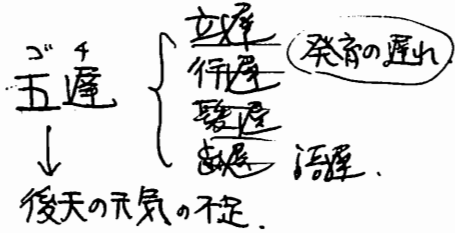 ゴチ
五遅
立遅
行遅
髪遅
歯遅 語遅.
発育の遅れ
↓
後天の元気の不足.